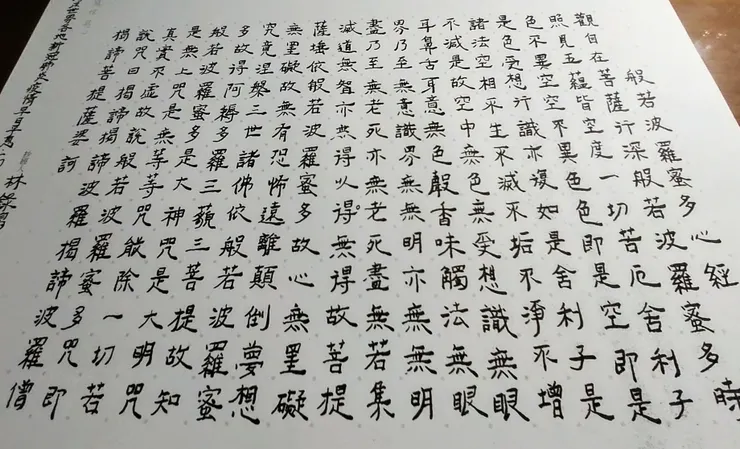 般若波羅蜜多心經
觀自在菩薩行深般若波羅蜜多時
照見五蘊皆空度一切苦厄舍利子
色不異空空不異色色即是空即是
是色受想行識亦復如是舍利子是
諸法空相不生不滅不垢不淨不增
不減是故空中無色無受想識無眼
耳鼻舌身意無色聲香味觸法無眼
界乃至無意識界無無明亦無無明
盡乃至無老死亦無老死盡無若集
滅道無智亦無得以得。無得故菩提
薩埵依般若波羅蜜多故心無罣礙
無罣礙故無有恐怖遠離顛倒夢想
究竟涅槃三世諸佛依般若波羅蜜
多故得阿耨多羅三藐三菩提故知
般若波羅蜜多是大神咒是大明咒
是無上咒是無等等咒能除一切若
真實不虛故說般若波羅蜜多咒即
說咒曰揭諦揭諦波羅揭諦波羅僧
揭諦菩提薩婆訶
世界各地新冠肺炎疫情 林